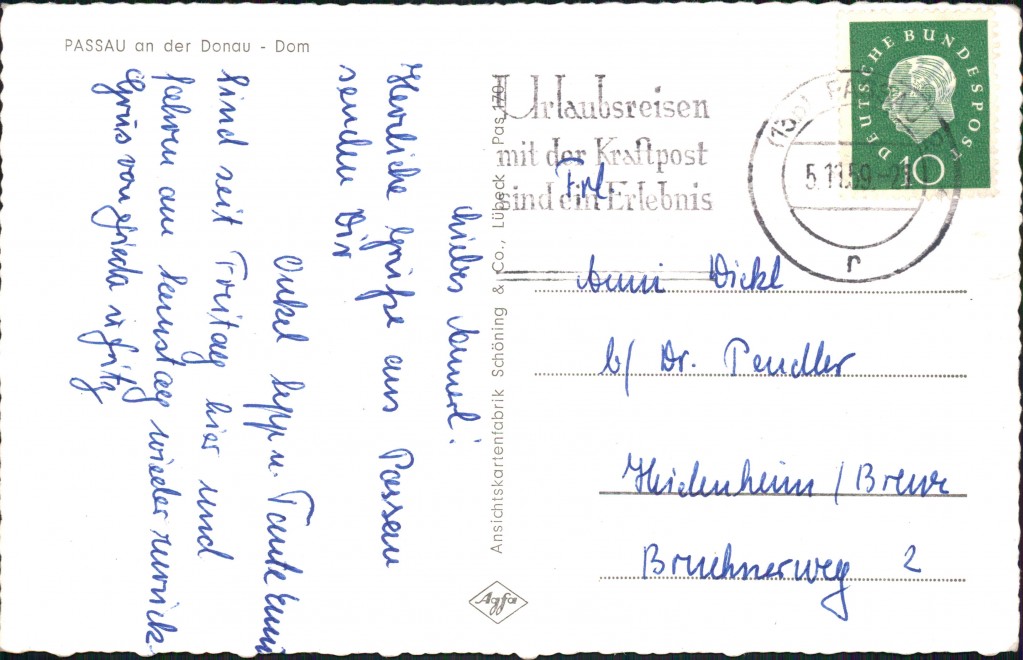 PASSAU an der Donau - Dom
Liebes Annerl!
Herzliche Grüße aus Passau
senden Dir
Onkel Sepp u. Tante Anni
sind seit Freitag hier und
fahren am Samstag wieder zurück
Gruß von u. Fritz
Ansichtskartenfabrik Schöning & Co., Lübeck Pas 170
Agfa
Urlaubsreisen
mit der Kraftpost
sind ein Erlebnis
DEUTSCHE BUNDESPOST
10
PASSAU
5.11.59
r
Frl.
Anni Dickl
b/ Dr. Pendler
Heidenheim / Brenz
Bruchnerweg 2